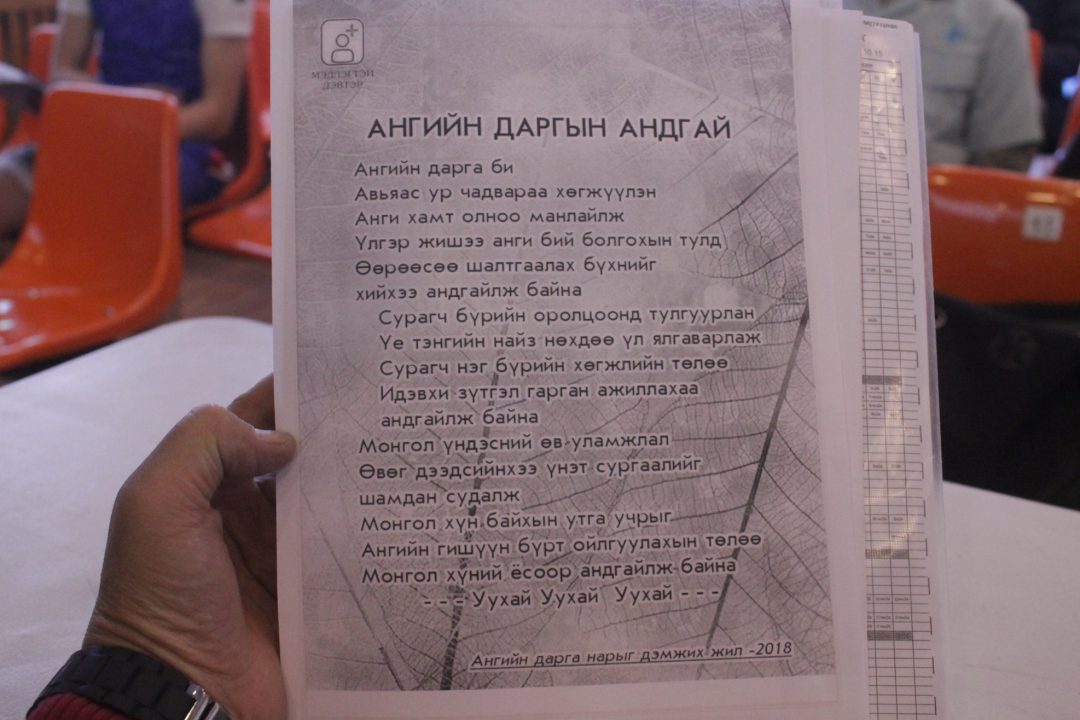 МЭДЛЭГТЭЙ
ДЭВТЭР
АНГИЙН ДАРГЫН АНДГАЙ
Ангийн дарга би
Авьяас ур чадвараа хөгжүүлэн
Анги хамт олноо манлайлж
Үлгэр жишээ анги бий болгохын тулд
Өөрөөсөө шалтгаалах бүхнийг
хийхээ андгайлж байна
Сурагч бүрийн оролцоонд тулгуурлан
Үе тэнгийн найз нөхдөө үл ялгаварлаж
Сурагч нэг бүрийн хөгжлийн төлөө
Идэвхи зүтгэл гарган ажиллахаа
андгайлж байна
Монгол үндэсний өв уламжлал
Өвөг дээдсийнхээ үнэт сургаалийг
шамдан судалж
Монгол хүн байхын утга учрыг
Ангийн гишүүн бүрт ойлгуулахын төлөө
Монгол хүний ёсоор андгайлж байна
- - - Уухай Уухай Уухай - - -
Ангийн дарга нарыг дэмжих жил -2018